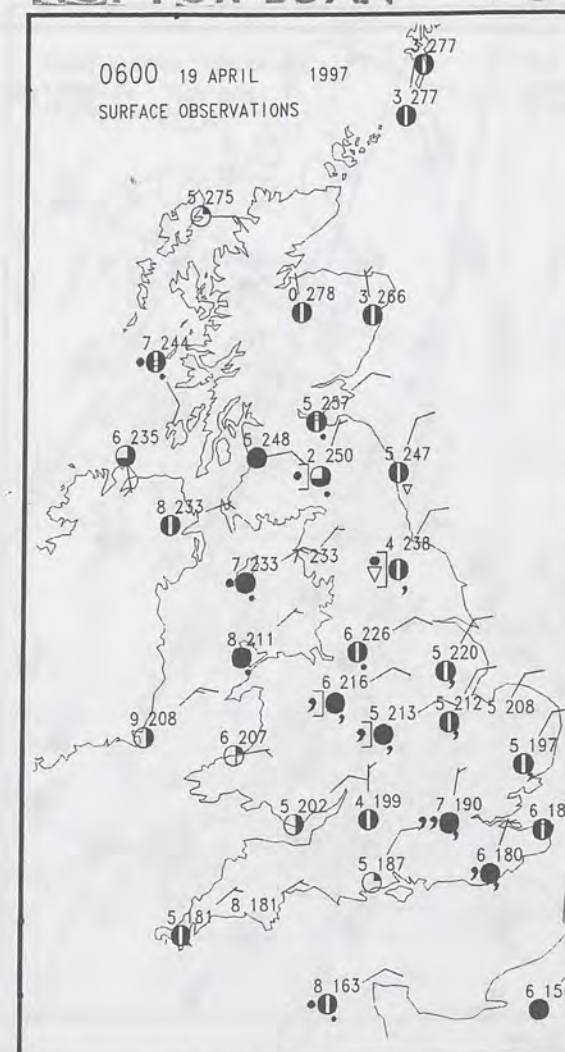 0600 19 APRIL 1997
SURFACE OBSERVATIONS
3 277
3 277
5 275
0 278
3 266
7 244
5 237
6 235
5 248
2 250
5 247
8 233
7 233
7 233
4 238
8 211
6 226
5 220
6 216
5 213
5 212
5 208
9 208
6 207
5 197
5 202
4 199
7 190
6 180
5 187
5 181
8 181
8 163